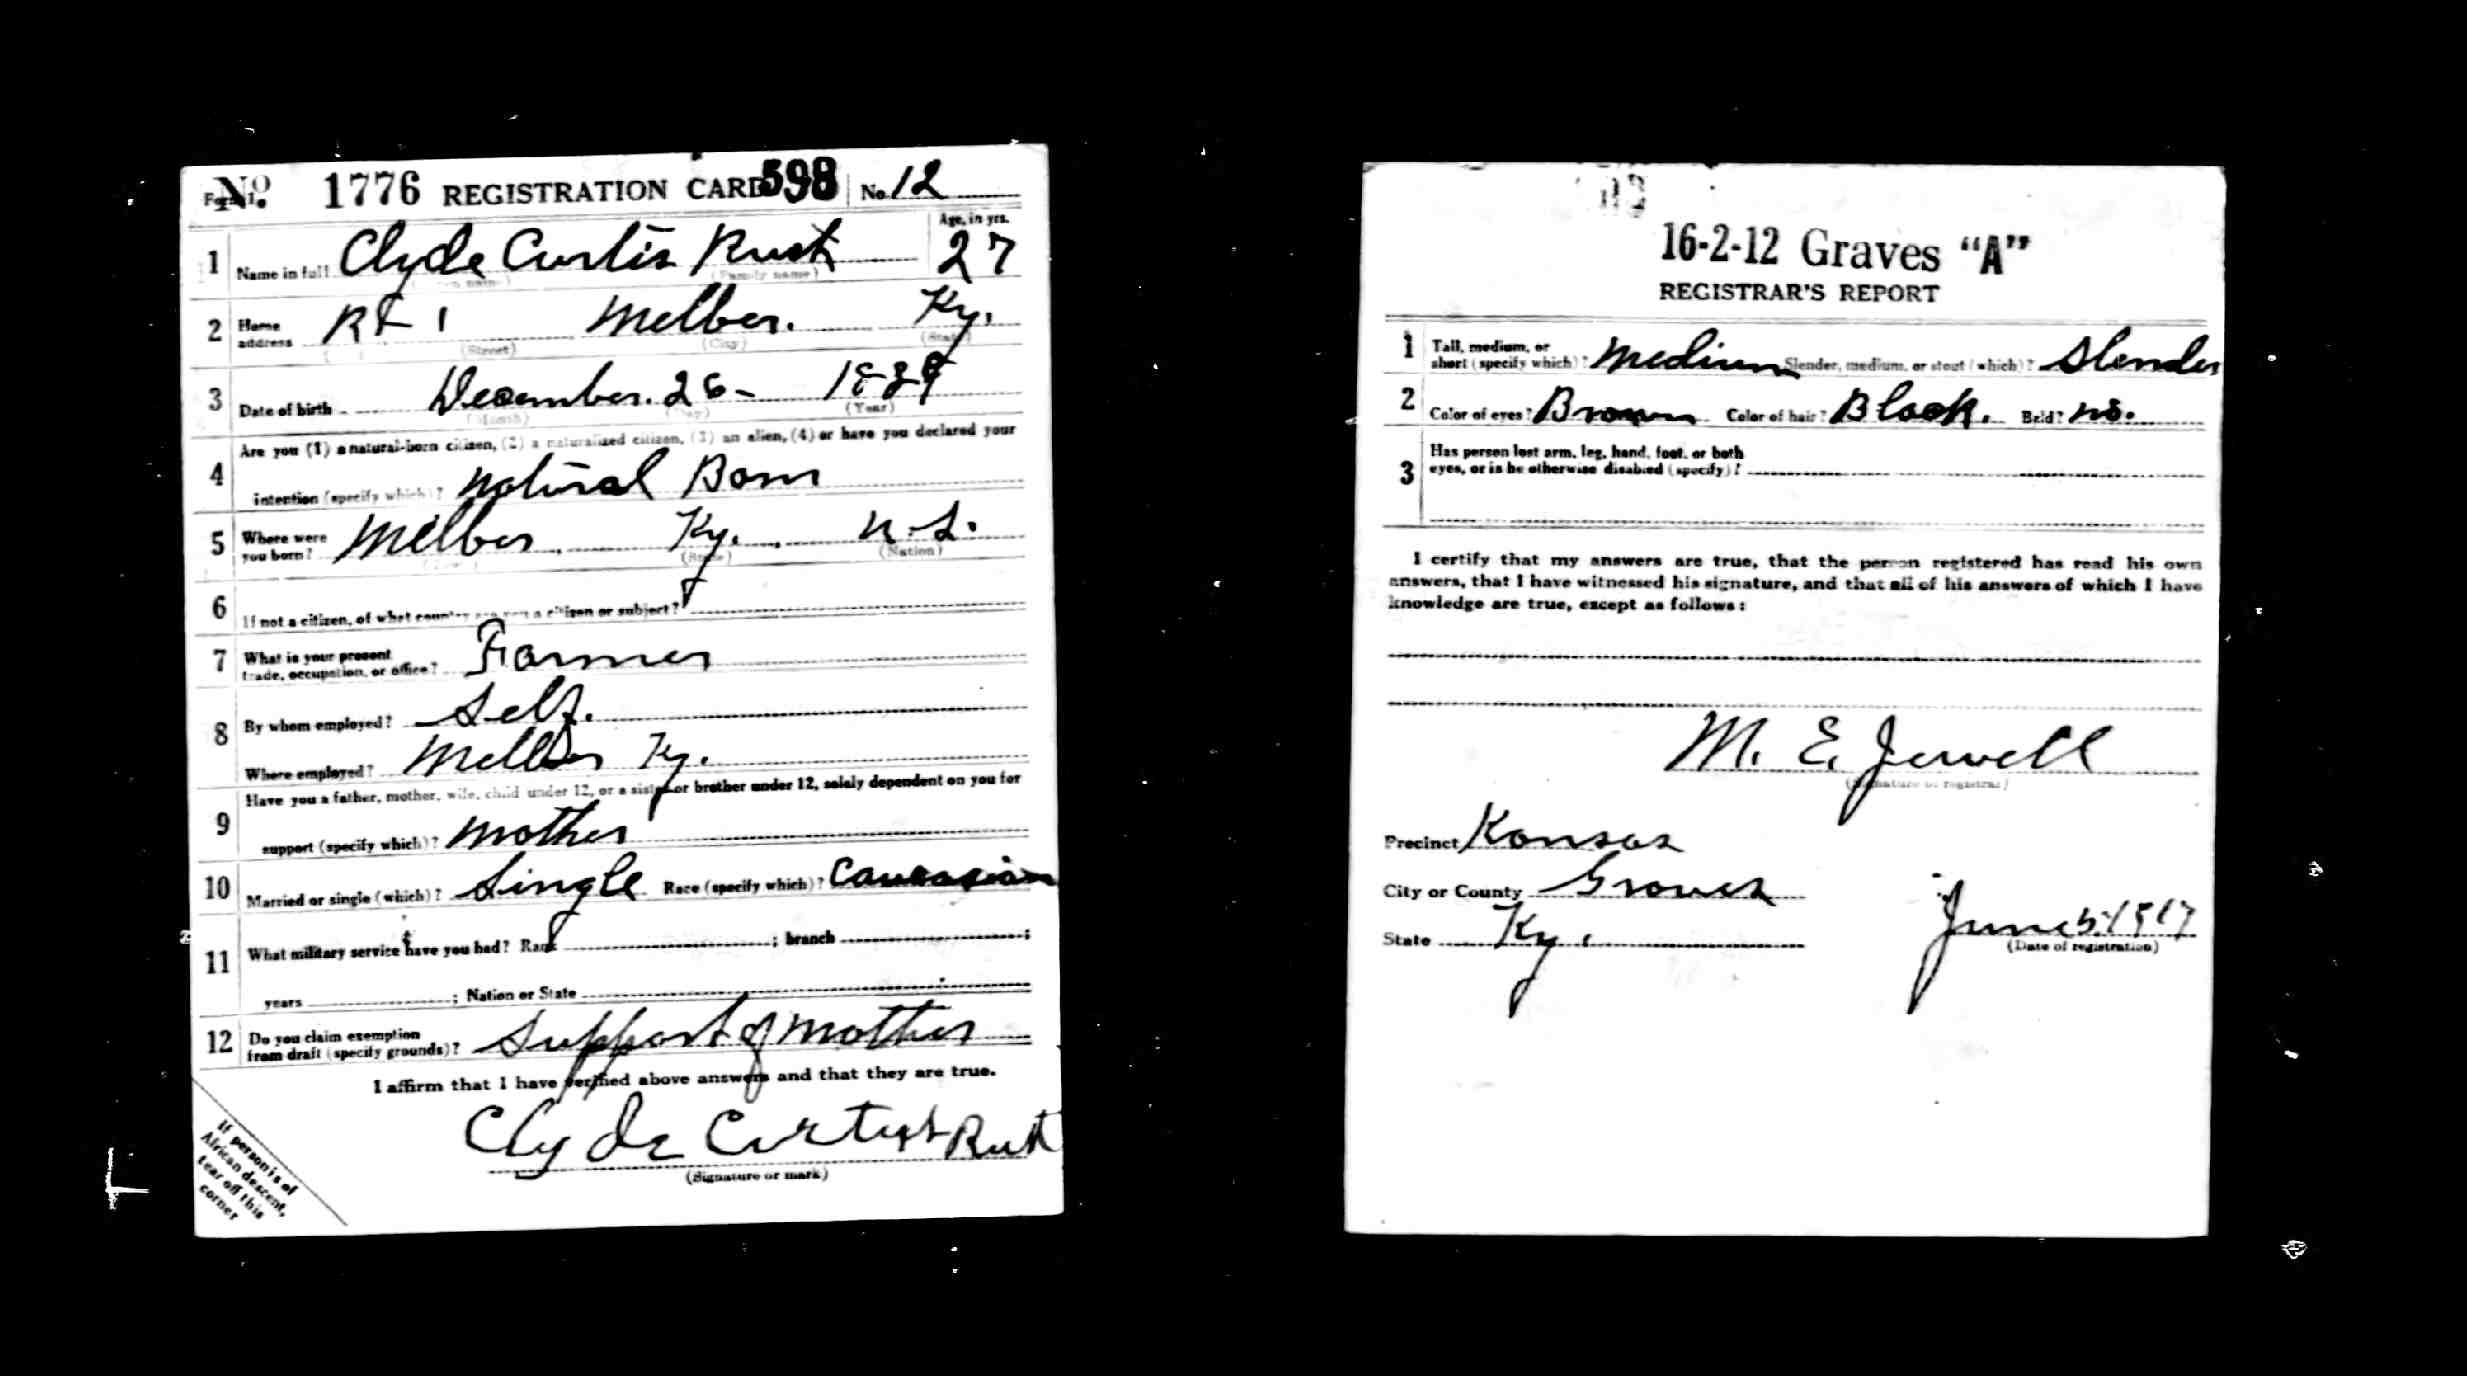 No. 1776 REGISTRATION CARD 598 No. 12
1 Name in full Clyde Curtis Rust Age, in yrs. 27
(Family name)
2 Home address Rt 1 Melber. Ky.
(Street) (City) (State)
3 Date of birth December. 26- 1889
(Month) (Day) (Year)
4 Are you (1) a natural-born citizen, (2) a naturalized citizen, (3) an alien, (4) or have you declared your
intention (specify which)? Natural Born
5 Where were you born? Melber, Ky.
(Town) (State) (Nation)
6 If not a citizen, of what country are you a citizen or subject?
7 What is your present trade, occupation, or office? Farmer
8 By whom employed? Self.
Where employed? Melber Ky.
9 Have you a father, mother, wife, child under 12, or a sister or brother under 12, solely dependent on you for
support (specify which)? Mother
10 Married or single (which)? Single Race (specify which)? Caucasian
11 What military service have you had? Rank ; branch ;
years ; Nation or State
12 Do you claim exemption from draft (specify grounds)? Support of Mother
I affirm that I have verified above answers and that they are true.
Clyde Curtis Rust
(Signature or mark)
If person is of
African descent,
tear off this
corner
16-2-12 Graves "A"
REGISTRAR'S REPORT
1 Tall, medium, or short (specify which)? Medium Slender, medium, or stout (which)? Slender
2 Color of eyes? Brown Color of hair? Black. Bald? No.
3 Has person lost arm, leg, hand, foot, or both
eyes, or is he otherwise disabled (specify)?
I certify that my answers are true, that the person registered has read his own
answers, that I have witnessed his signature, and that all of his answers of which I have
knowledge are true, except as follows:
M. E. Jewell
(Signature of registrar)
Precinct Kansas
City or County Graves
State Ky. June 5. 1917
(Date of registration)